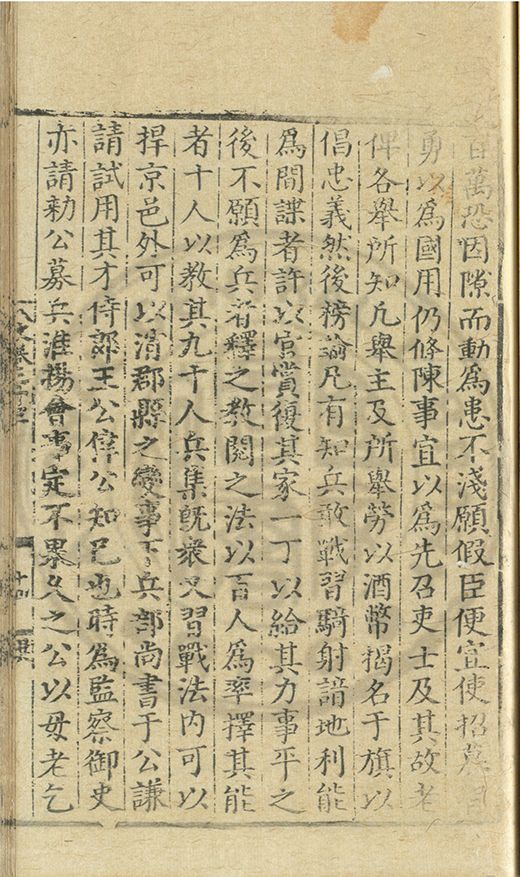 百萬恐因隙而動為患不淺願假臣便宜使招募
勇以為國用仍條陳事宜以為先召吏士及其故老
俾各舉所知凡舉主及所舉勞以酒幣揭名于旗以
倡忠義然後榜諭凡有知兵敢戰習騎射諳地利能
為間諜者許以官賞復其家一丁以給其力事平之
後不願為兵者釋之教閱之法以百人為率擇其能
者十人以教其九十人兵集旣衆又習戰法内可以
捍京邑外可以消郡縣之變事下兵部尚書于公謙
請試用其才侍郎王公偉公知己也時為監察御史
亦請勑公募兵淮揚會事定不果久之公以母老乞
十四